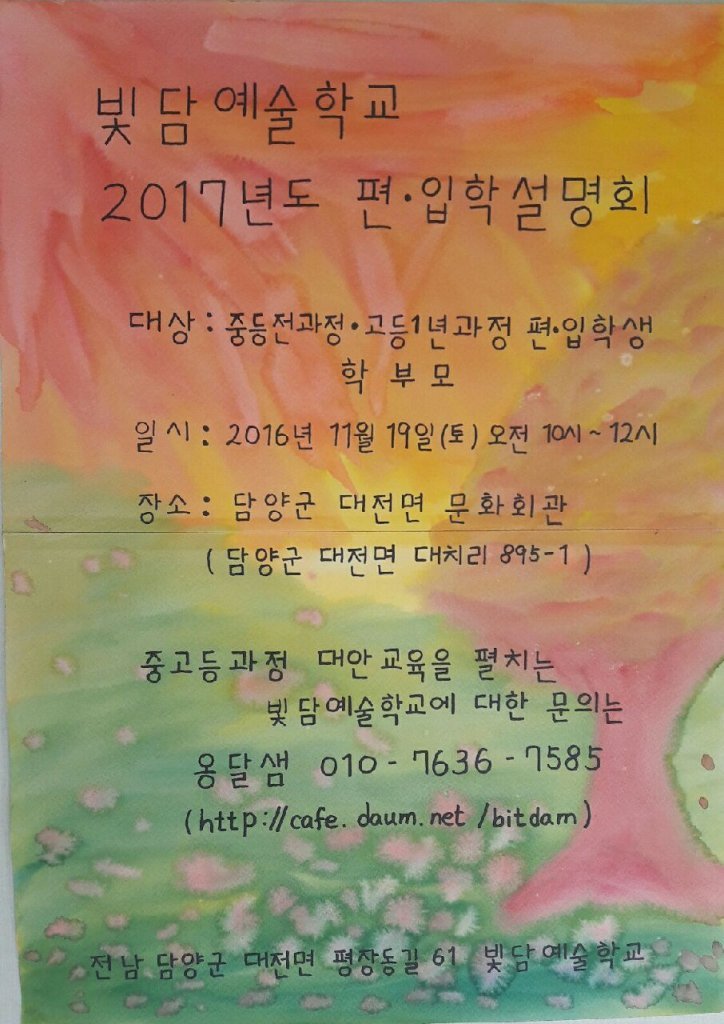 빛담예술학교
2017년도 편·입학설명회
대상 : 중등전과정·고등1년과정 편·입학생
학부모
일시 : 2016년 11월 19일(토) 오전 10시~12시
장소 : 담양군 대전면 문화회관
(담양군 대전면 대치리 895-1)
중고등과정 대안교육을 펼치는
빛담예술학교에 대한 문의는
옹달샘 010-7636-7585
(http://cafe.daum.net/bitdam)
전남 담양군 대전면 평장동길 61 빛담예술학교